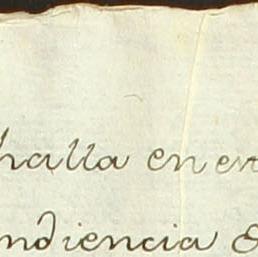 halla en en
ndiencia &